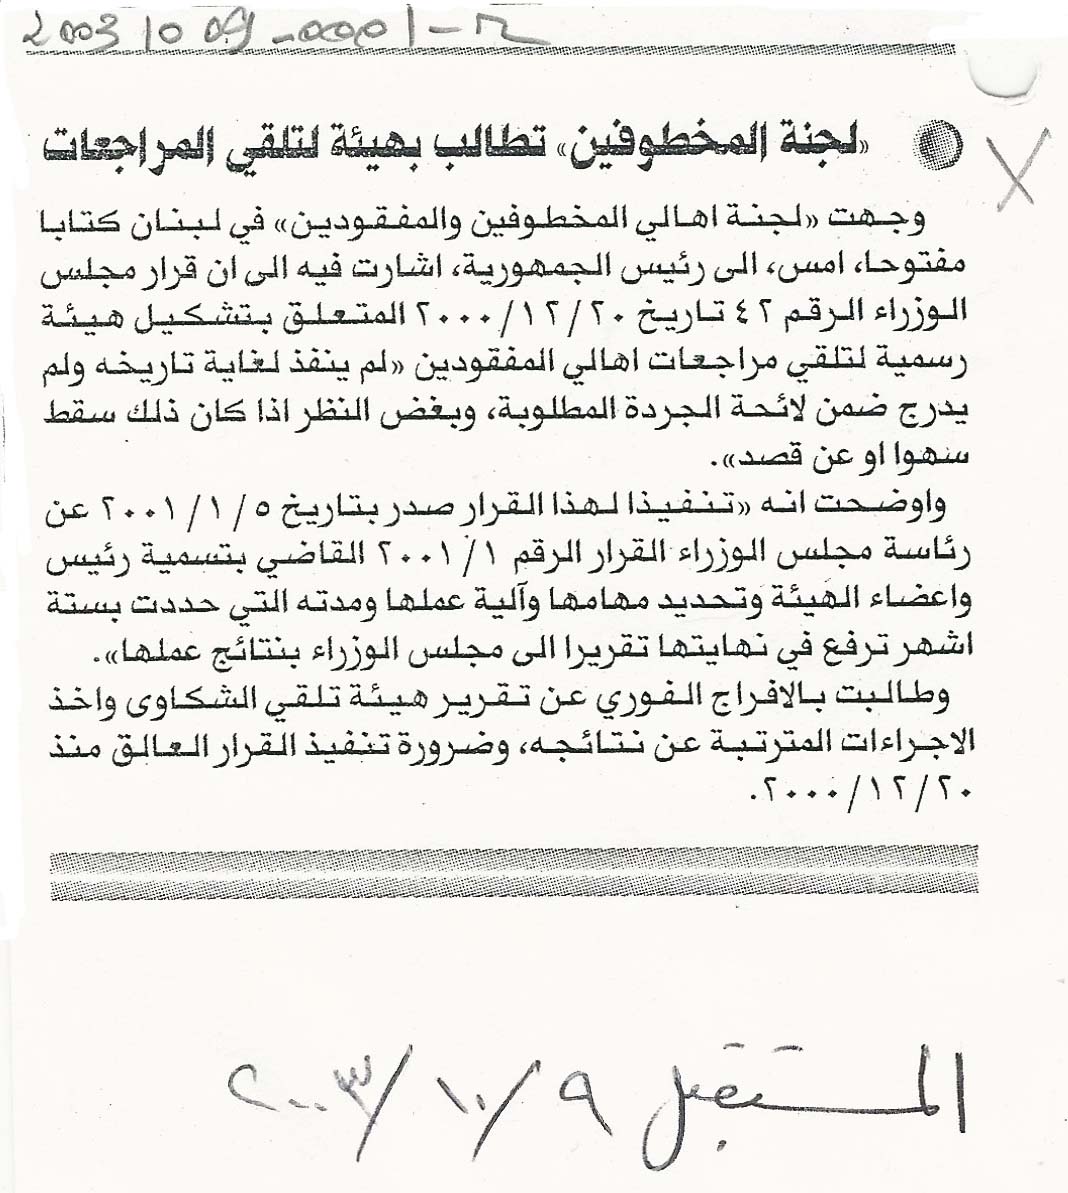 20031009-0001-m
«لجنة المخطوفين» تطالب بهيئة لتلقي المراجعات
وجهت «لجنة اهالي المخطوفين والمفقودين» في لبنان كتابا
مفتوحا، امس، الى رئيس الجمهورية، اشارت فيه الى ان قرار مجلس
الوزراء الرقم ٤٢ تاريخ ٢٠/١٢/٢٠٠٠ المتعلق بتشكيل هيئة
رسمية لتلقي مراجعات اهالي المفقودين «لم ينفذ لغاية تاريخه ولم
يدرج ضمن لائحة الجردة المطلوبة، وبغض النظر اذا كان ذلك سقط
سهوا او عن قصد».
واوضحت انه «تنفيذا لهذا القرار صدر بتاريخ ٥/١/٢٠٠١ عن
رئاسة مجلس الوزراء القرار الرقم ٢٠٠١/١ القاضي بتسمية رئيس
واعضاء الهيئة وتحديد مهامها وآلية عملها ومدته التي حددت بستة
اشهر ترفع في نهايتها تقريرا الى مجلس الوزراء بنتائج عملها».
وطالبت بالافراج الفوري عن تقرير هيئة تلقي الشكاوى واخذ
الاجراءات المترتبة عن نتائجه، وضرورة تنفيذ القرار العالق منذ
٢٠/١٢/٢٠٠٠.
المستقبل ٩/١٠/٢٠٠٣